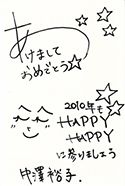 あ
けまして
おめでとう☆
2010年も
HAPPY
HAPPY
に参りましょう
中澤裕子